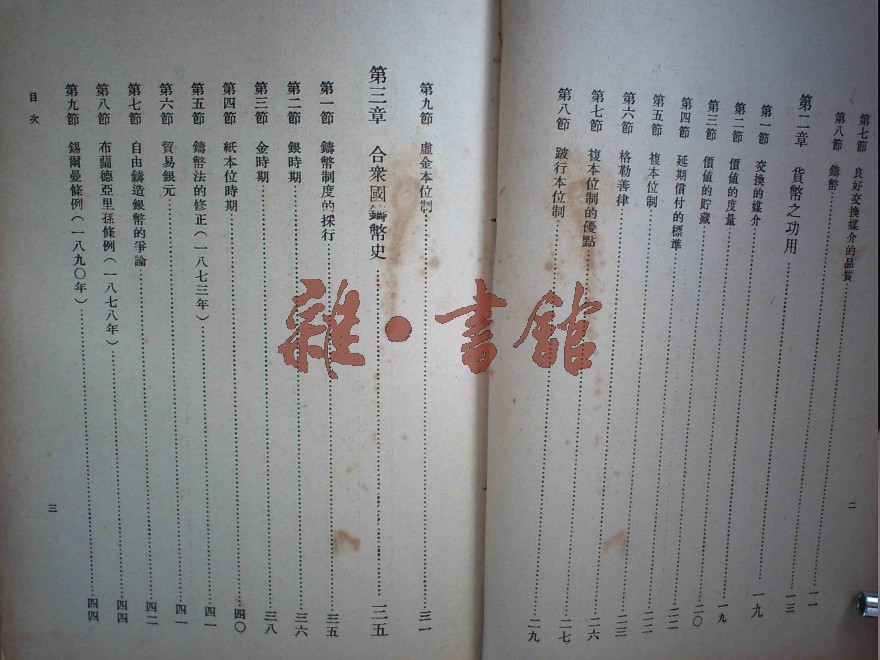 第七節 良好交換媒介的品質……一一
第八節 鑄幣……一三
第二章 貨幣之功用……一九
第一節 交換的媒介……一九
第二節 價値的度量……二〇
第三節 價値的貯藏……二二
第四節 延期償付的標準……二二
第五節 複本位制……二三
第六節 格勒善律……二六
第七節 複本位制的優點……二七
第八節 跛行本位制……二九
二
第九節 虛金本位制……三一
第三章 合衆國鑄幣史……三五
第一節 鑄幣制度的採行……三五
第二節 銀時期……三六
第三節 金時期……三八
第四節 紙本位時期……四〇
第五節 鑄幣法的修正(一八七三年)……四一
第六節 貿易銀元……四一
第七節 自由鑄造銀幣的爭論……四二
第八節 布蘭德亞里孫條例(一八七八年)……四四
第九節 錫爾曼條例(一八九〇年)……四四
目次
三
雜·書館